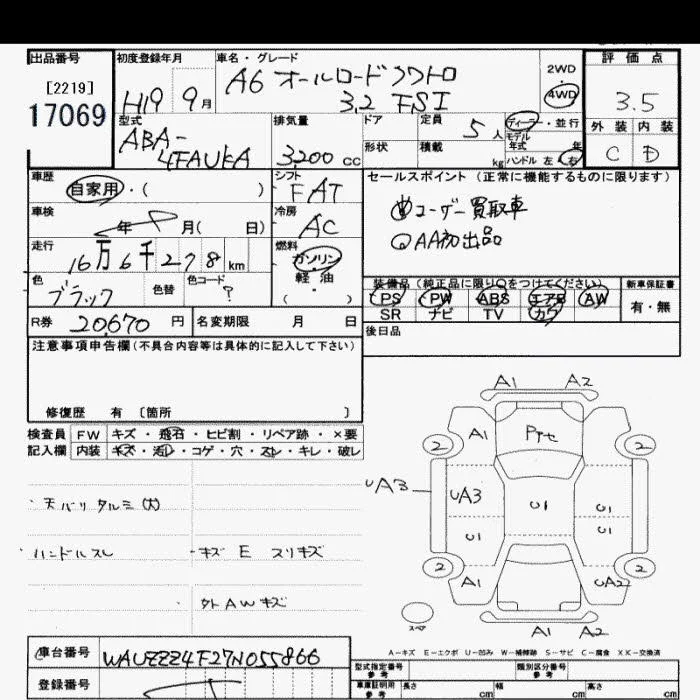 出品番号 初度登録年月 車名・グレード 評価点
[2219] 17069
H19 9月 A6 オールロードクワトロ 3.2 FSI 2WD・4WD 3.5
型式 ABA-4FAUKA 排気量 3,200cc ドア 定員 5人 ディーラー・並行 モデル 外装 内装
形状 積載 kg 年式 年 ハンドル 左 右 C D
車歴 自家用・( ) シフト FAT セールスポイント(正常に機能するものに限ります)
車検 年 月( 日) 冷房 AC ユーザー買取車
○AA初出品
走行 16万6千278km 燃料 ガソリン 軽・油・( )
色 ブラック 色替 色コード ? 装備品(純正品に限り○をつけてください) 新車保証書
PS PW ABS エアB AW 有・無
SR ナビ TV カワ
R券 20,670円 名変期限 月 日 後日品
注意事項申告欄(不具合内容等は具体的に記入して下さい)
修復歴 有 〔箇所 〕
検査員 FW キズ・飛石・ヒビ割・リペア跡・×要
記入欄 内装 キズ・汚レ・コゲ・穴・スレ・キレ・破レ
・天バリタルミ(大)
・ハンドルスレ ・キズ E スリキズ
・外AWキズ
A1 A2
A1
2 2
UA3 UA3 U1 U1
U1 U1
2 2
A1 UA2
スペア A1 A2
A-キズ E-エクボ U-凹み W-補修跡 S-サビ C-腐食 XX-交換済
車台番号 WAUZZZ4F27N055866 型式指定番号 参考 類別区分番号 参考
登録番号 車庫証明用 参考 長さ cm 幅 cm 高さ cm